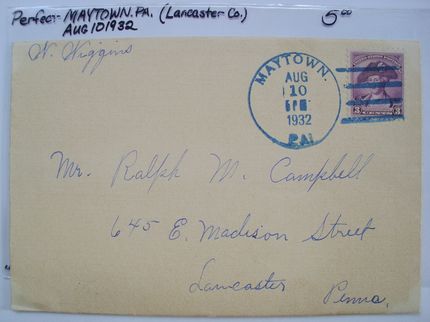 Perfect- MAYTOWN. PA. (Lancaster Co.) 5.00
AUG 10 1932
W. Wiggins
MAYTOWN.
AUG
10
6PM
1932
PA.
3 3
Mr. Ralph M. Campbell
645 E. Madison Street
Lancaster
Penna.